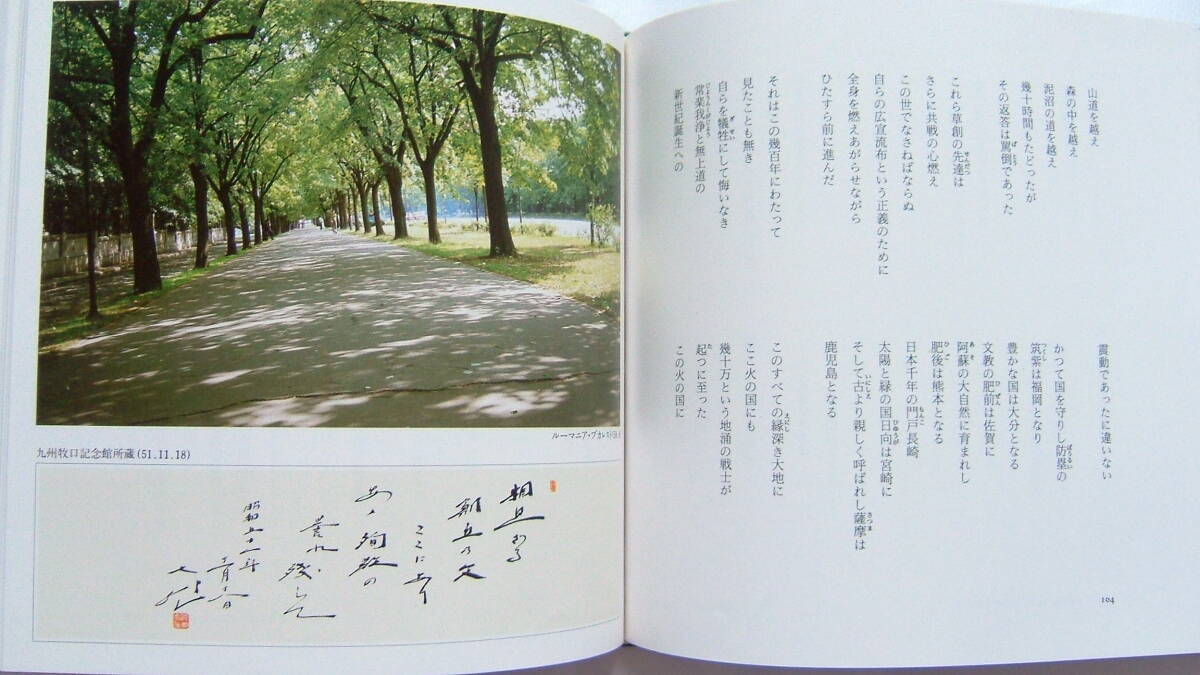 ルーマニア・ブカレスト(自)
九州牧口記念館所蔵(51.11.18)
朝丘の
ここにあり
あゝ殉教の
誉れ残して
昭和五十一年
山道を越え
森の中を越え
泥沼の道を越え
幾十時間もたどったが
その返答は罵倒であった
これら草創の先達は
さらに共戦の心燃え
この世でなさねばならぬ
自らの広宣流布という正義のために
全身を燃えあがらせながら
ひたすら前に進んだ
それはこの幾百年にわたって
見たことも無き
自らを犠牲にして悔いなき
常楽我浄と無上道の
新世紀誕生への
震動であったに違いない
かつて国を守りし防塁の
筑紫は福岡となり
豊かな国は大分となる
文教の肥前は佐賀に
阿蘇の大自然に育まれし
肥後は熊本となる
日本千年の門戸長崎
太陽と緑の国日向は宮崎に
そして古より親しく呼ばれし薩摩は
鹿児島となる
このすべての縁深き大地に
ここ火の国にも
幾十万という地涌の戦士が
起つに至った
この火の国に
104